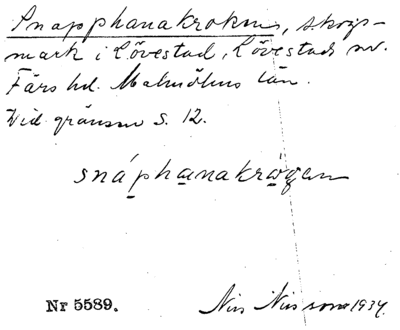 Snapphanakroken, skogs-
mark i Lövestad, Lövestads sn.
Färs hd. Malmöhus län.
Vid gränsen s. 12.
snáphanakrågen
Nr 5589.
Nils Nilsson 1934.